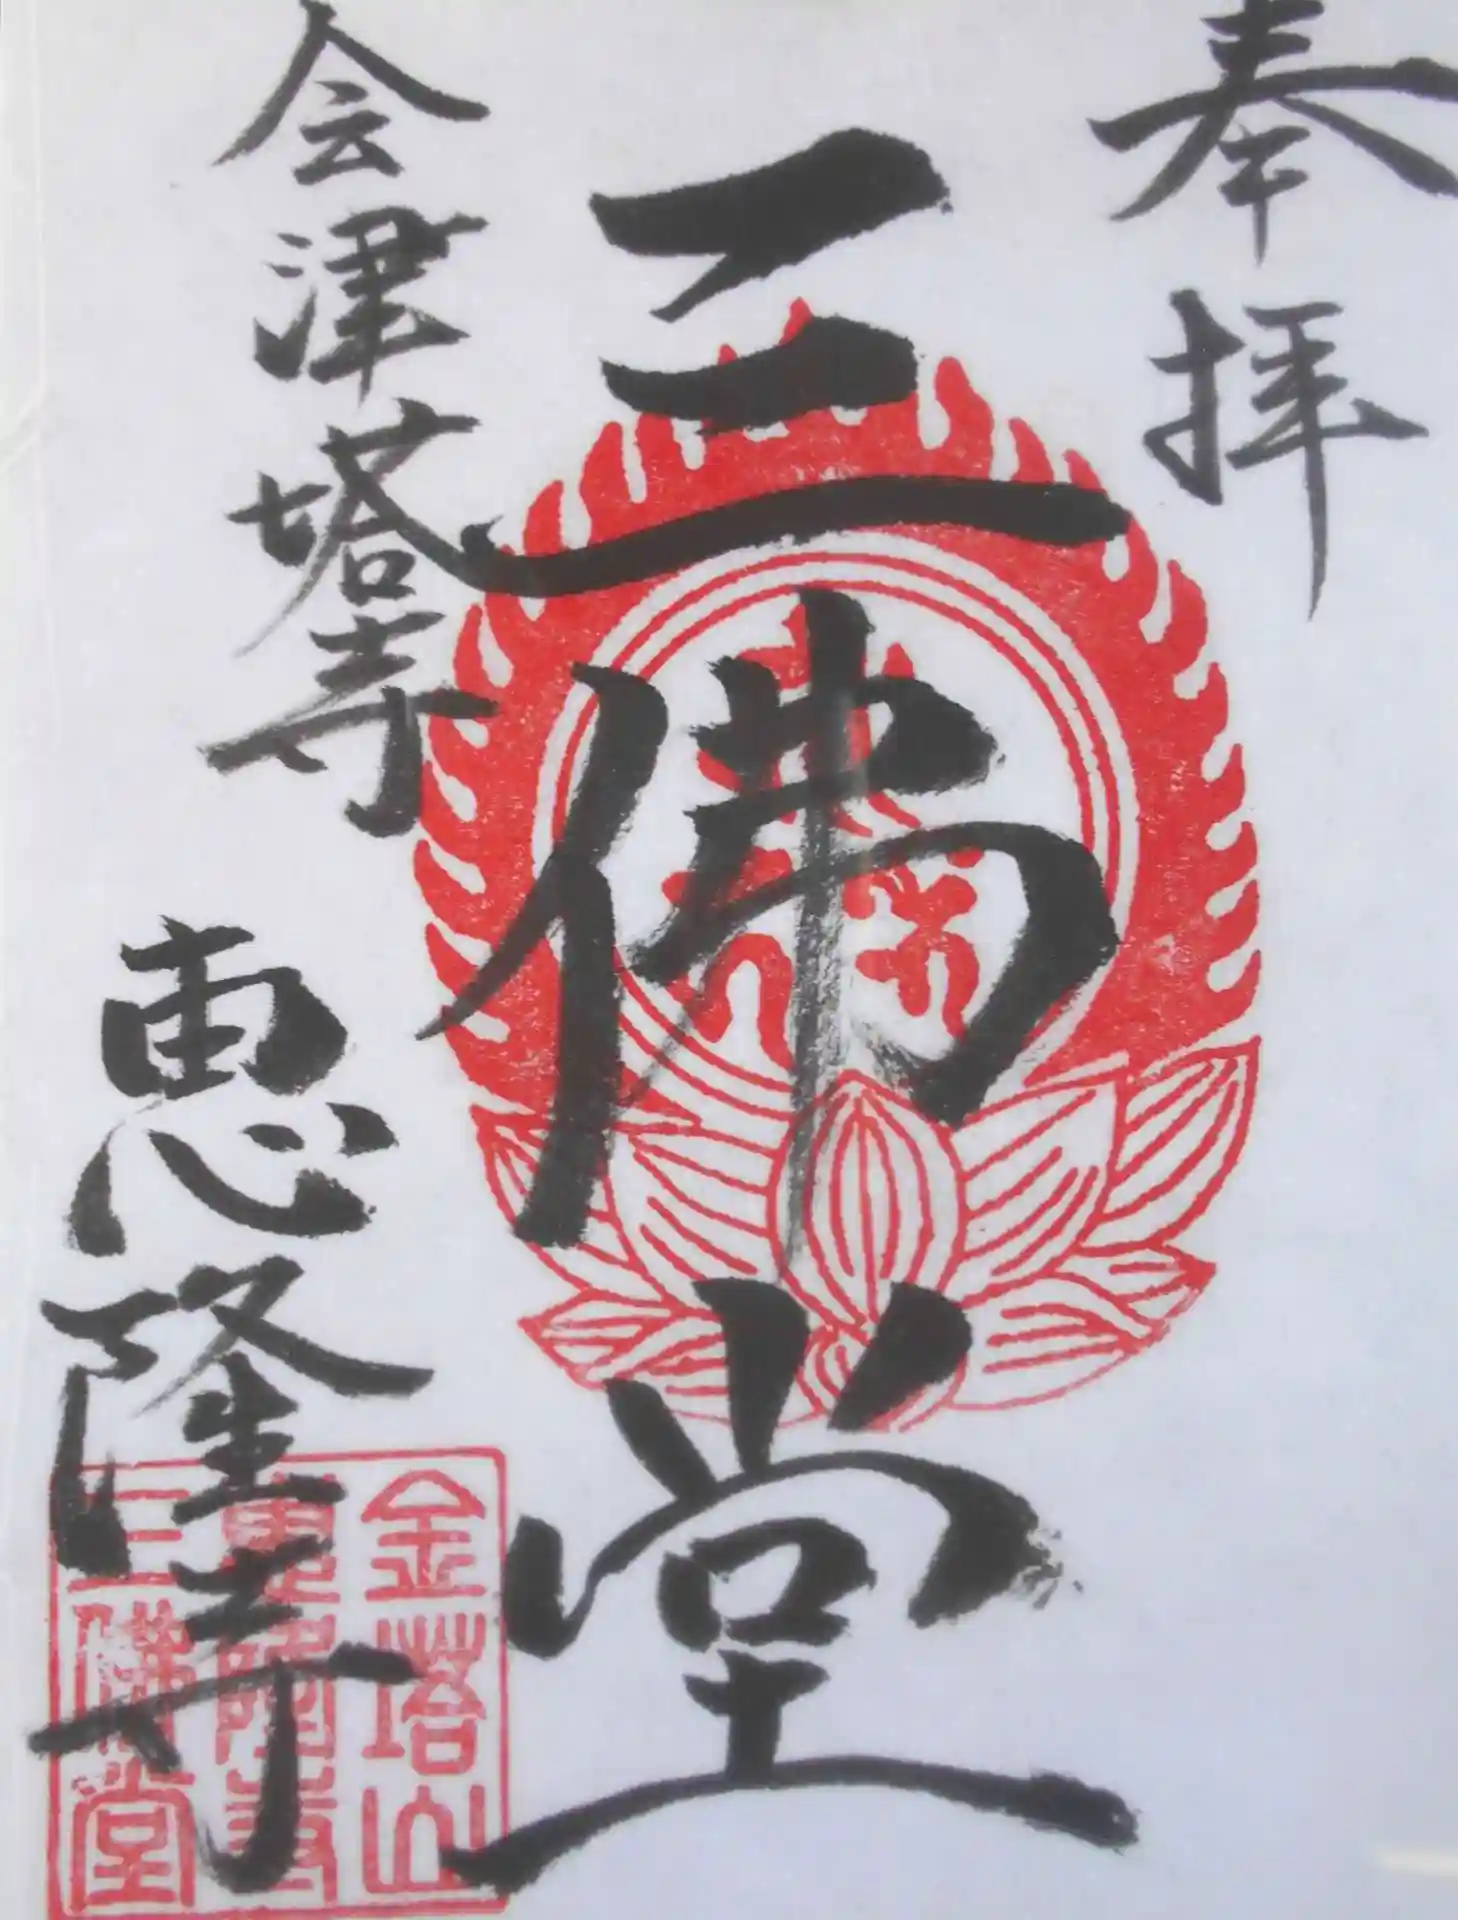 奉拝
三佛堂
会津塔寺
恵隆寺
金塔山
恵隆寺
三佛堂